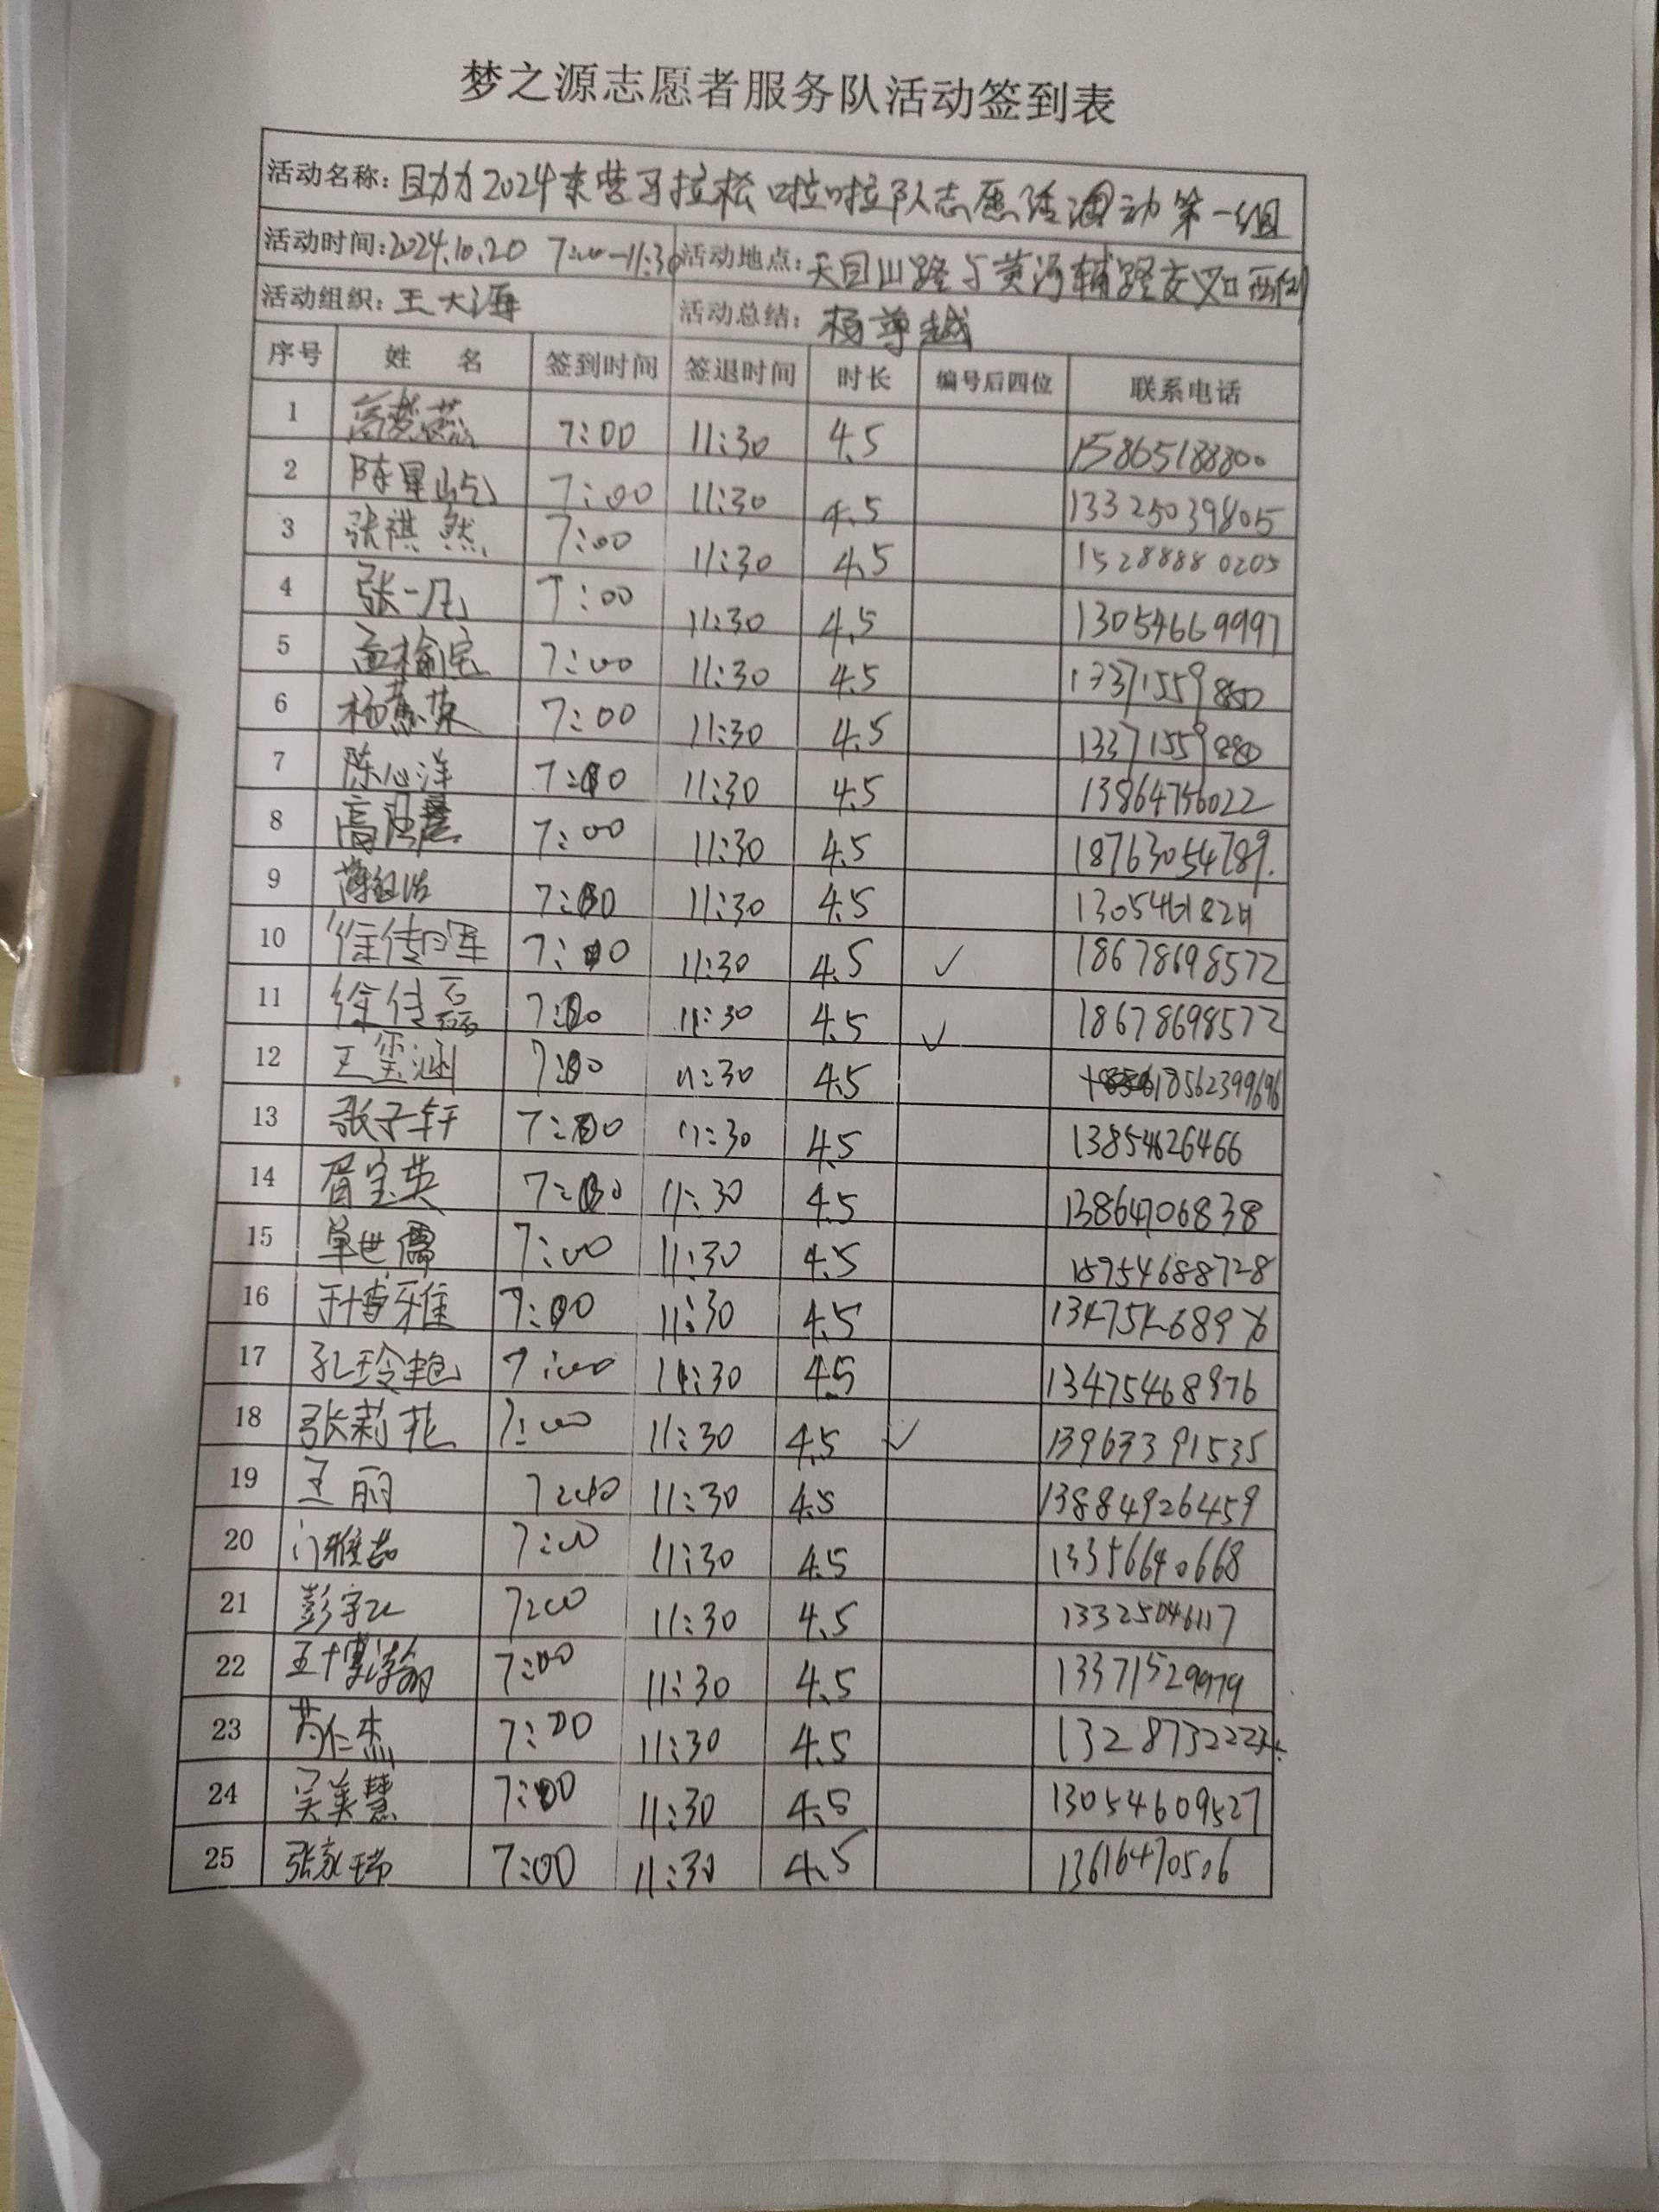 梦之源志愿者服务队活动签到表
活动名称: 助力2024东营马拉松啦啦队志愿活动第一组
活动时间:2024.10.20 7:00-11:30 活动地点: 天目山路与黄河辅路交叉口西侧
活动组织: 王大海 活动总结: 杨尊越
序号 姓 名 签到时间 签退时间 时长 编号后四位 联系电话
1 高梦燕 7:00 11:30 4.5 15865188800
2 陈星屹 7:00 11:30 4.5 13325039805
3 张祺然 7:00 11:30 4.5 15288880205
4 张一凡 7:00 11:30 4.5 13054669997
5 孟榆宸 7:00 11:30 4.5
6 杨蕙英 7:00 11:30 4.5 13371559880
7 陈心洋 7:00 11:30 4.5 13864756022
8 高 7:00 11:30 4.5 18763054789.
9 7:00 11:30 4.5
10 徐传军 7:00 11:30 4.5 ✓ 18678698572
11 徐传磊 7:00 11:30 4.5 ✓ 18678698572
12 王玺涵 7:00 11:30 4.5 18562399696
13 张子轩 7:00 11:30 4.5 13854626466
14 胥宝英 7:00 11:30 4.5 13864706838
15 单世儒 7:00 11:30 4.5 15954688728
16 王博雅 7:00 11:30 4.5 13475468976
17 孔玲艳 7:00 11:30 4.5 13475468976
18 张莉花 7:00 11:30 4.5 ✓ 13963391535
19 王丽 7:00 11:30 4.5 13884926459
20 门雅茹 7:00 11:30 4.5 13356640668
21 彭 7:00 11:30 4.5 13325046117
22 王博瀚 7:00 11:30 4.5 13371529979
23 芮仁杰 7:00 11:30 4.5
24 吴美慧 7:00 11:30 4.5 13054609527
25 张永瑞 7:00 11:30 4.5 13616470506